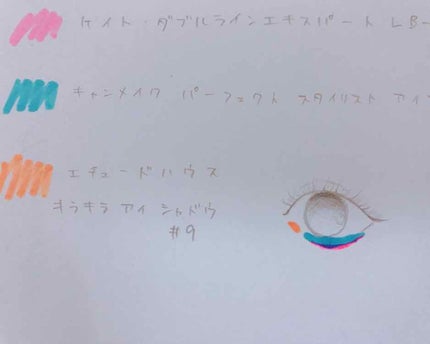 ケイト・ダブルラインエキスパート LB-
キャンメイク パーフェクト スタイリスト アイ
エチュードハウス
キラキラアイシャドウ
#9